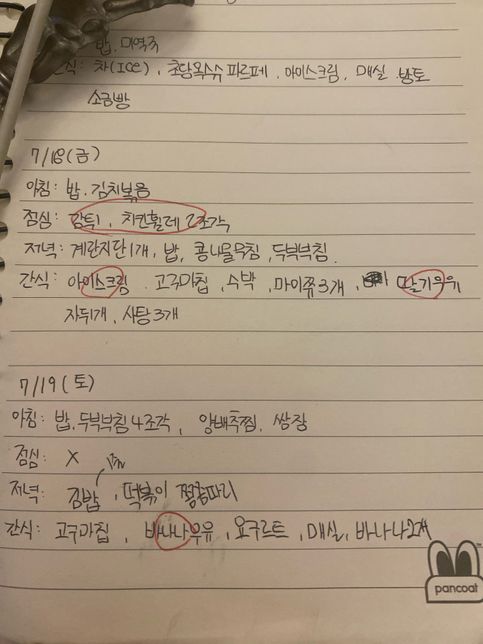 밥, 미역국
간식: 차(ICE), 초당옥수수 파르페, 아이스크림, 매실, 방토
소금빵
7/18(금)
아침: 밥, 김치볶음
점심: 감튀, 치킨휠레 2조각
저녁: 계란지단1개, 밥, 콩나물무침, 두부부침.
간식: 아이스크림, 고구마칩, 수박, 마이쮸3개, 딸기우유
자두1개, 사탕3개
7/19(토)
아침: 밥, 두부부침4조각, 양배추찜, 쌈장
점심: X
저녁: 김밥, 떡볶이
간식: 고구마칩, 바나나우유, 요구르트, 매실, 바나나2개
pancoat